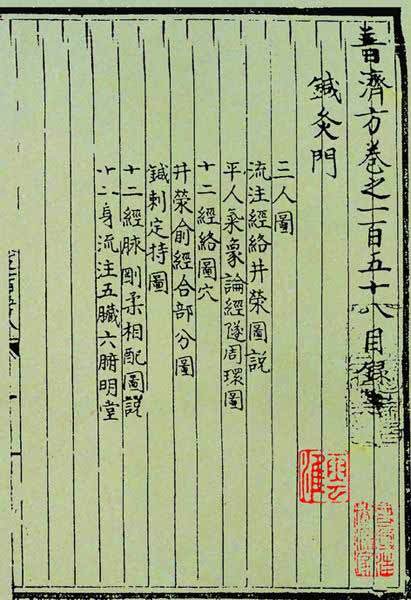 普濟方卷之一百五十八目錄
鍼灸門
三人圖
流注經絡井榮圖説
平人氣象論經隧周環圖
十二經絡圖穴
井榮俞經合部分圖
鍼刺定持圖
十二經脉剛柔相配圖説
十二身流注五臟六腑明堂